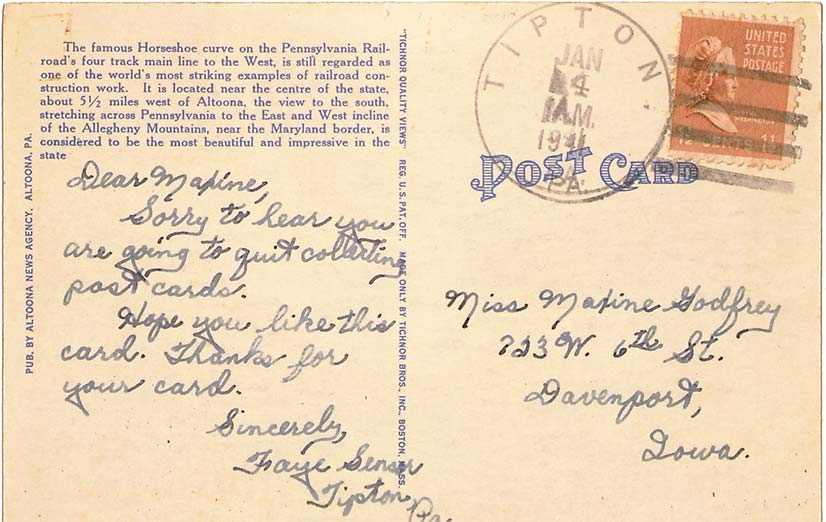 The famous Horseshoe curve on the Pennsylvania Rail-
road's four track main line to the West, is still regarded as
one of the world's most striking examples of railroad con-
struction work. It is located near the centre of the state,
about 5½ miles west of Altoona, the view to the south,
stretching across Pennsylvania to the East and West incline
of the Allegheny Mountains, near the Maryland border, is
considered to be the most beautiful and impressive in the
state
PUB. BY ALTOONA NEWS AGENCY, ALTOONA, PA.
Dear Maxine,
Sorry to hear you
are going to quit collecting
post cards.
Hope you like this
card. Thanks for
your card.
Sincerely,
Faye Senser
Tipton,
Pa.
"TICHNOR QUALITY VIEWS" REG. U.S. PAT. OFF. MADE ONLY BY TICHNOR BROS., INC., BOSTON, MASS.
TIPTON,
JAN
4
A.M.
PA.
UNITED
STATES
POSTAGE
WASHINGTON
1½ CENTS 1½
POST CARD
Miss Maxine Godfrey
W. 6th St.
Davenport,
Iowa.